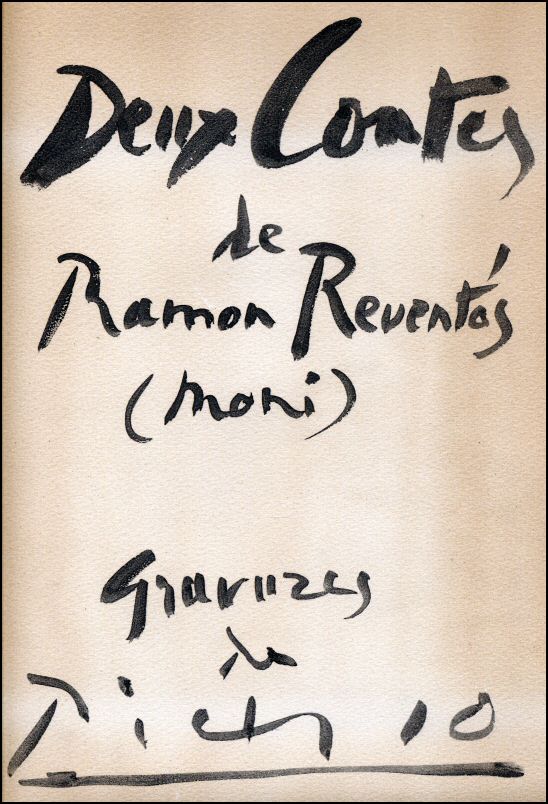 Deux Contes
de
Ramon Reventós
(Moni)
Gravures
de
Picasso